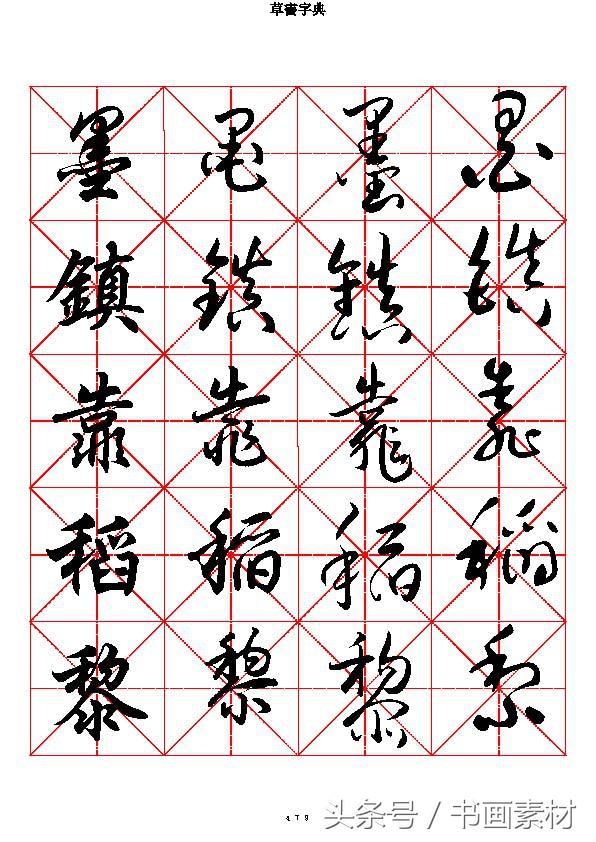 草書字典
墨 墨 墨 墨
鎮 鎮 鎮 鎮
靠 靠 靠 靠
稻 稻 稻 稻
黎 黎 黎 黎
479
头条号 / 书画素材